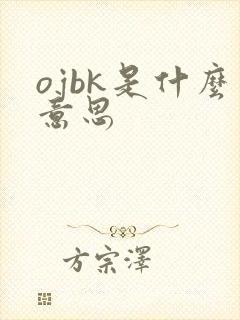 ojbk是什麼
意思
方宗澤